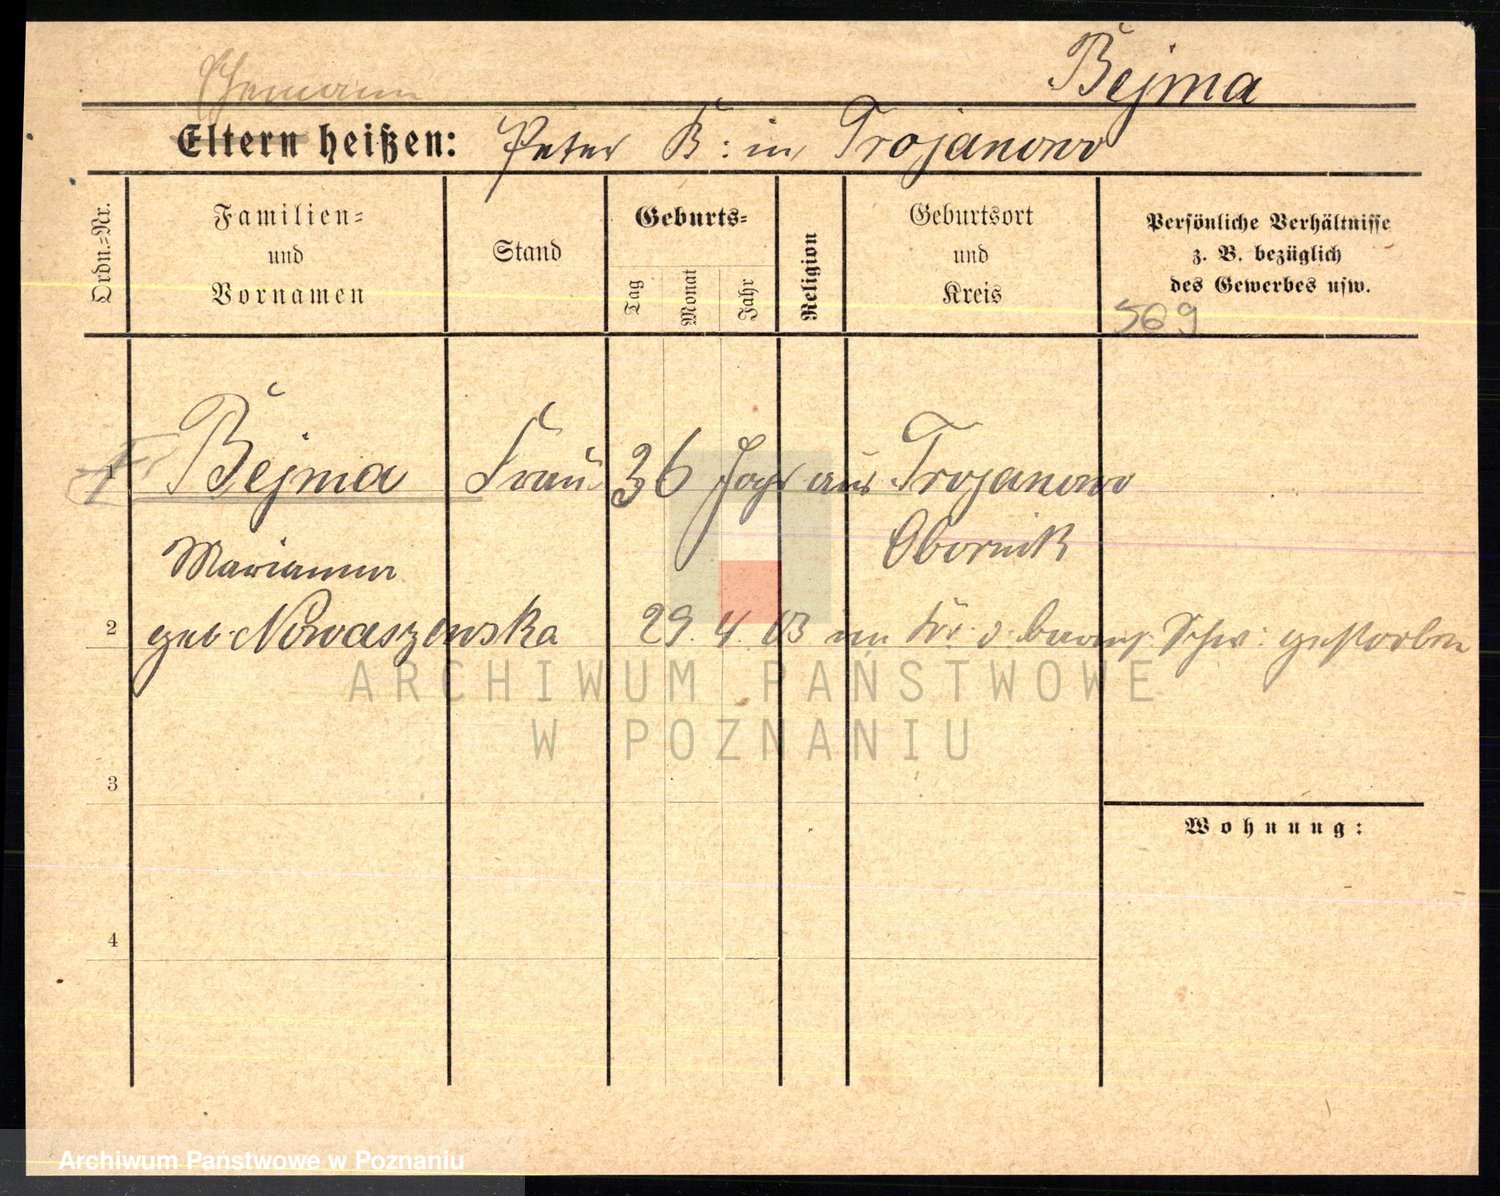 Bejma
Ehemann
Eltern heißen: Peter B: in Trojanowo
Ordn.=Nr.
Familien=
und
Vornamen
Stand
Geburts=
Tag
Monat
Jahr
Religion
Geburtsort
und
Kreis
Persönliche Verhältnisse
z. B. bezüglich
des Gewerbes usw.
569
1 Bejma Frau 36 Jahr aus Trojanowo
Marianna Obornik
2 geb. Nowaszewska 29. 4. 03 im Kr. d. barmh. Schw: gestorben
3
4
Wohnung:
ARCHIWUM PAŃSTWOWE
W POZNANIU
Archiwum Państwowe w Poznaniu